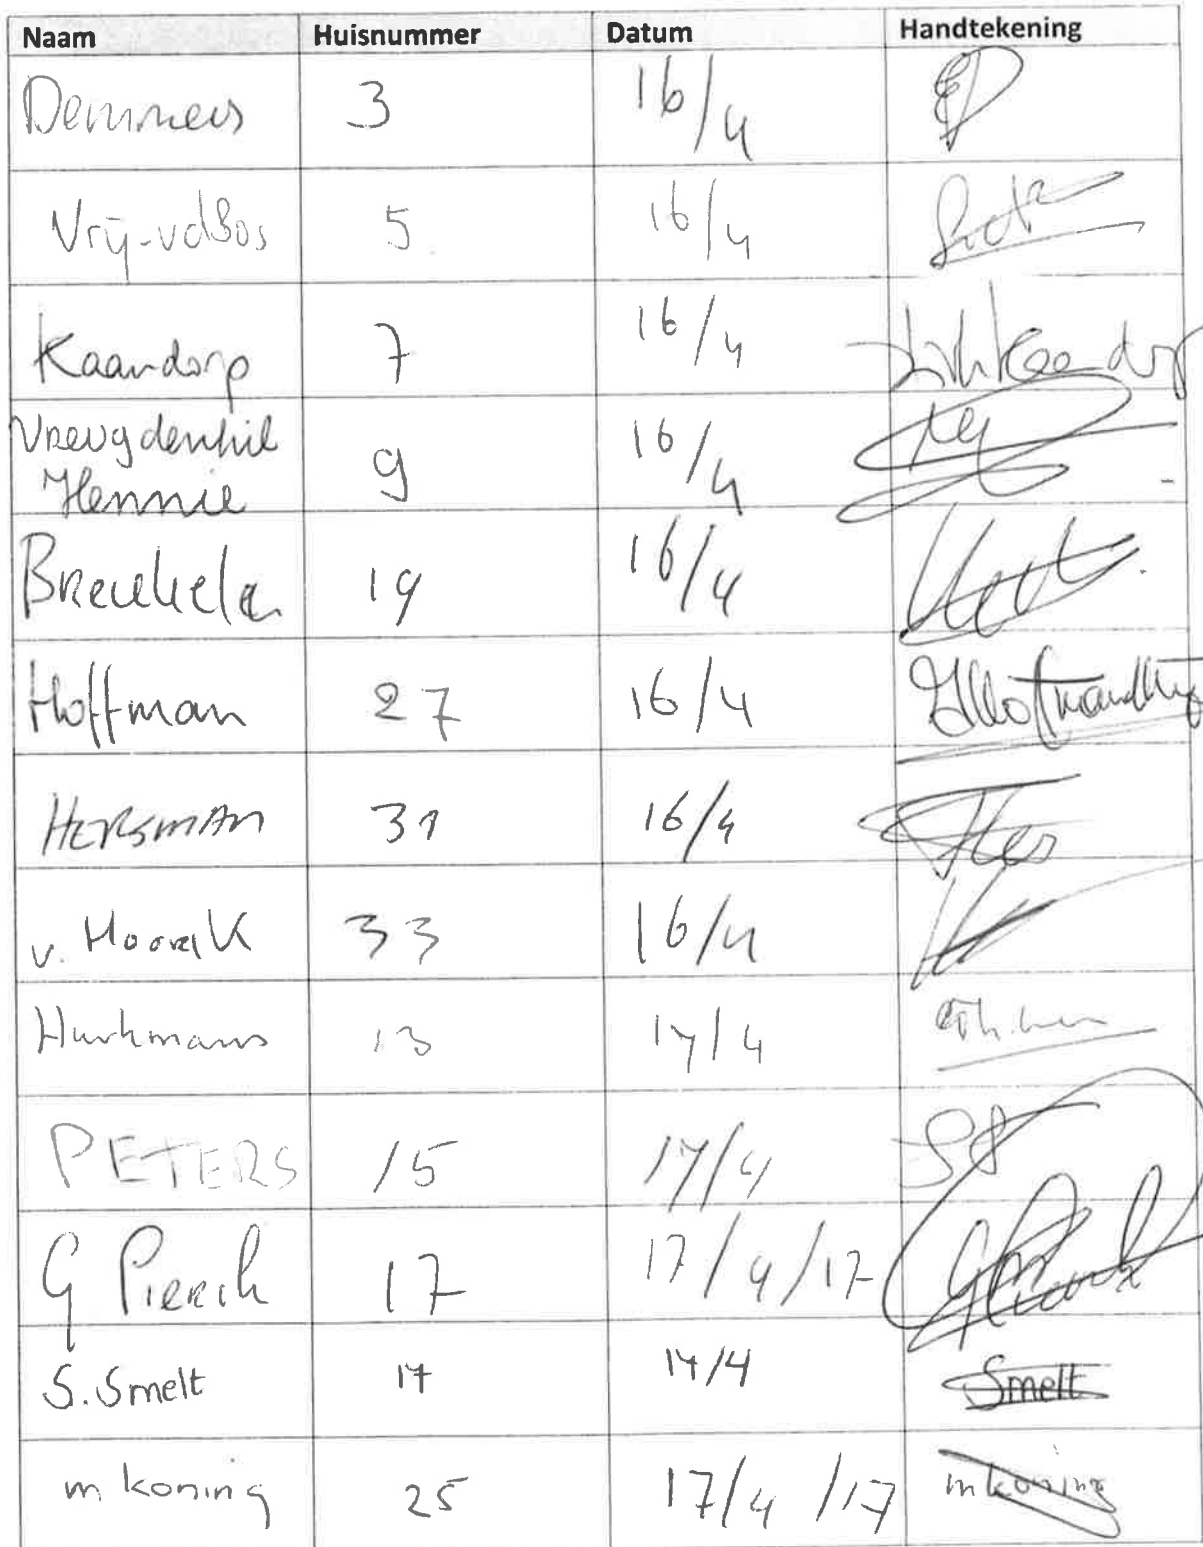 Naam Huisnummer Datum Handtekening
Demmers 3 16/4
Vrij-vdBos 5 16/4
Kaandorp 7 16/4 Kaandorp
Vreugdenhil
Hennie 9 16/4
Breukela 19 16/4
Hoffman 27 16/4
HERSMAN 31 16/4 Hers
v. 33 16/4
Hurkmans 13 17/4
PETERS 15 17/4
G Pierik 17 17/4/17
S. Smelt 17 17/4 Smelt
m koning 25 17/4/17 m koning